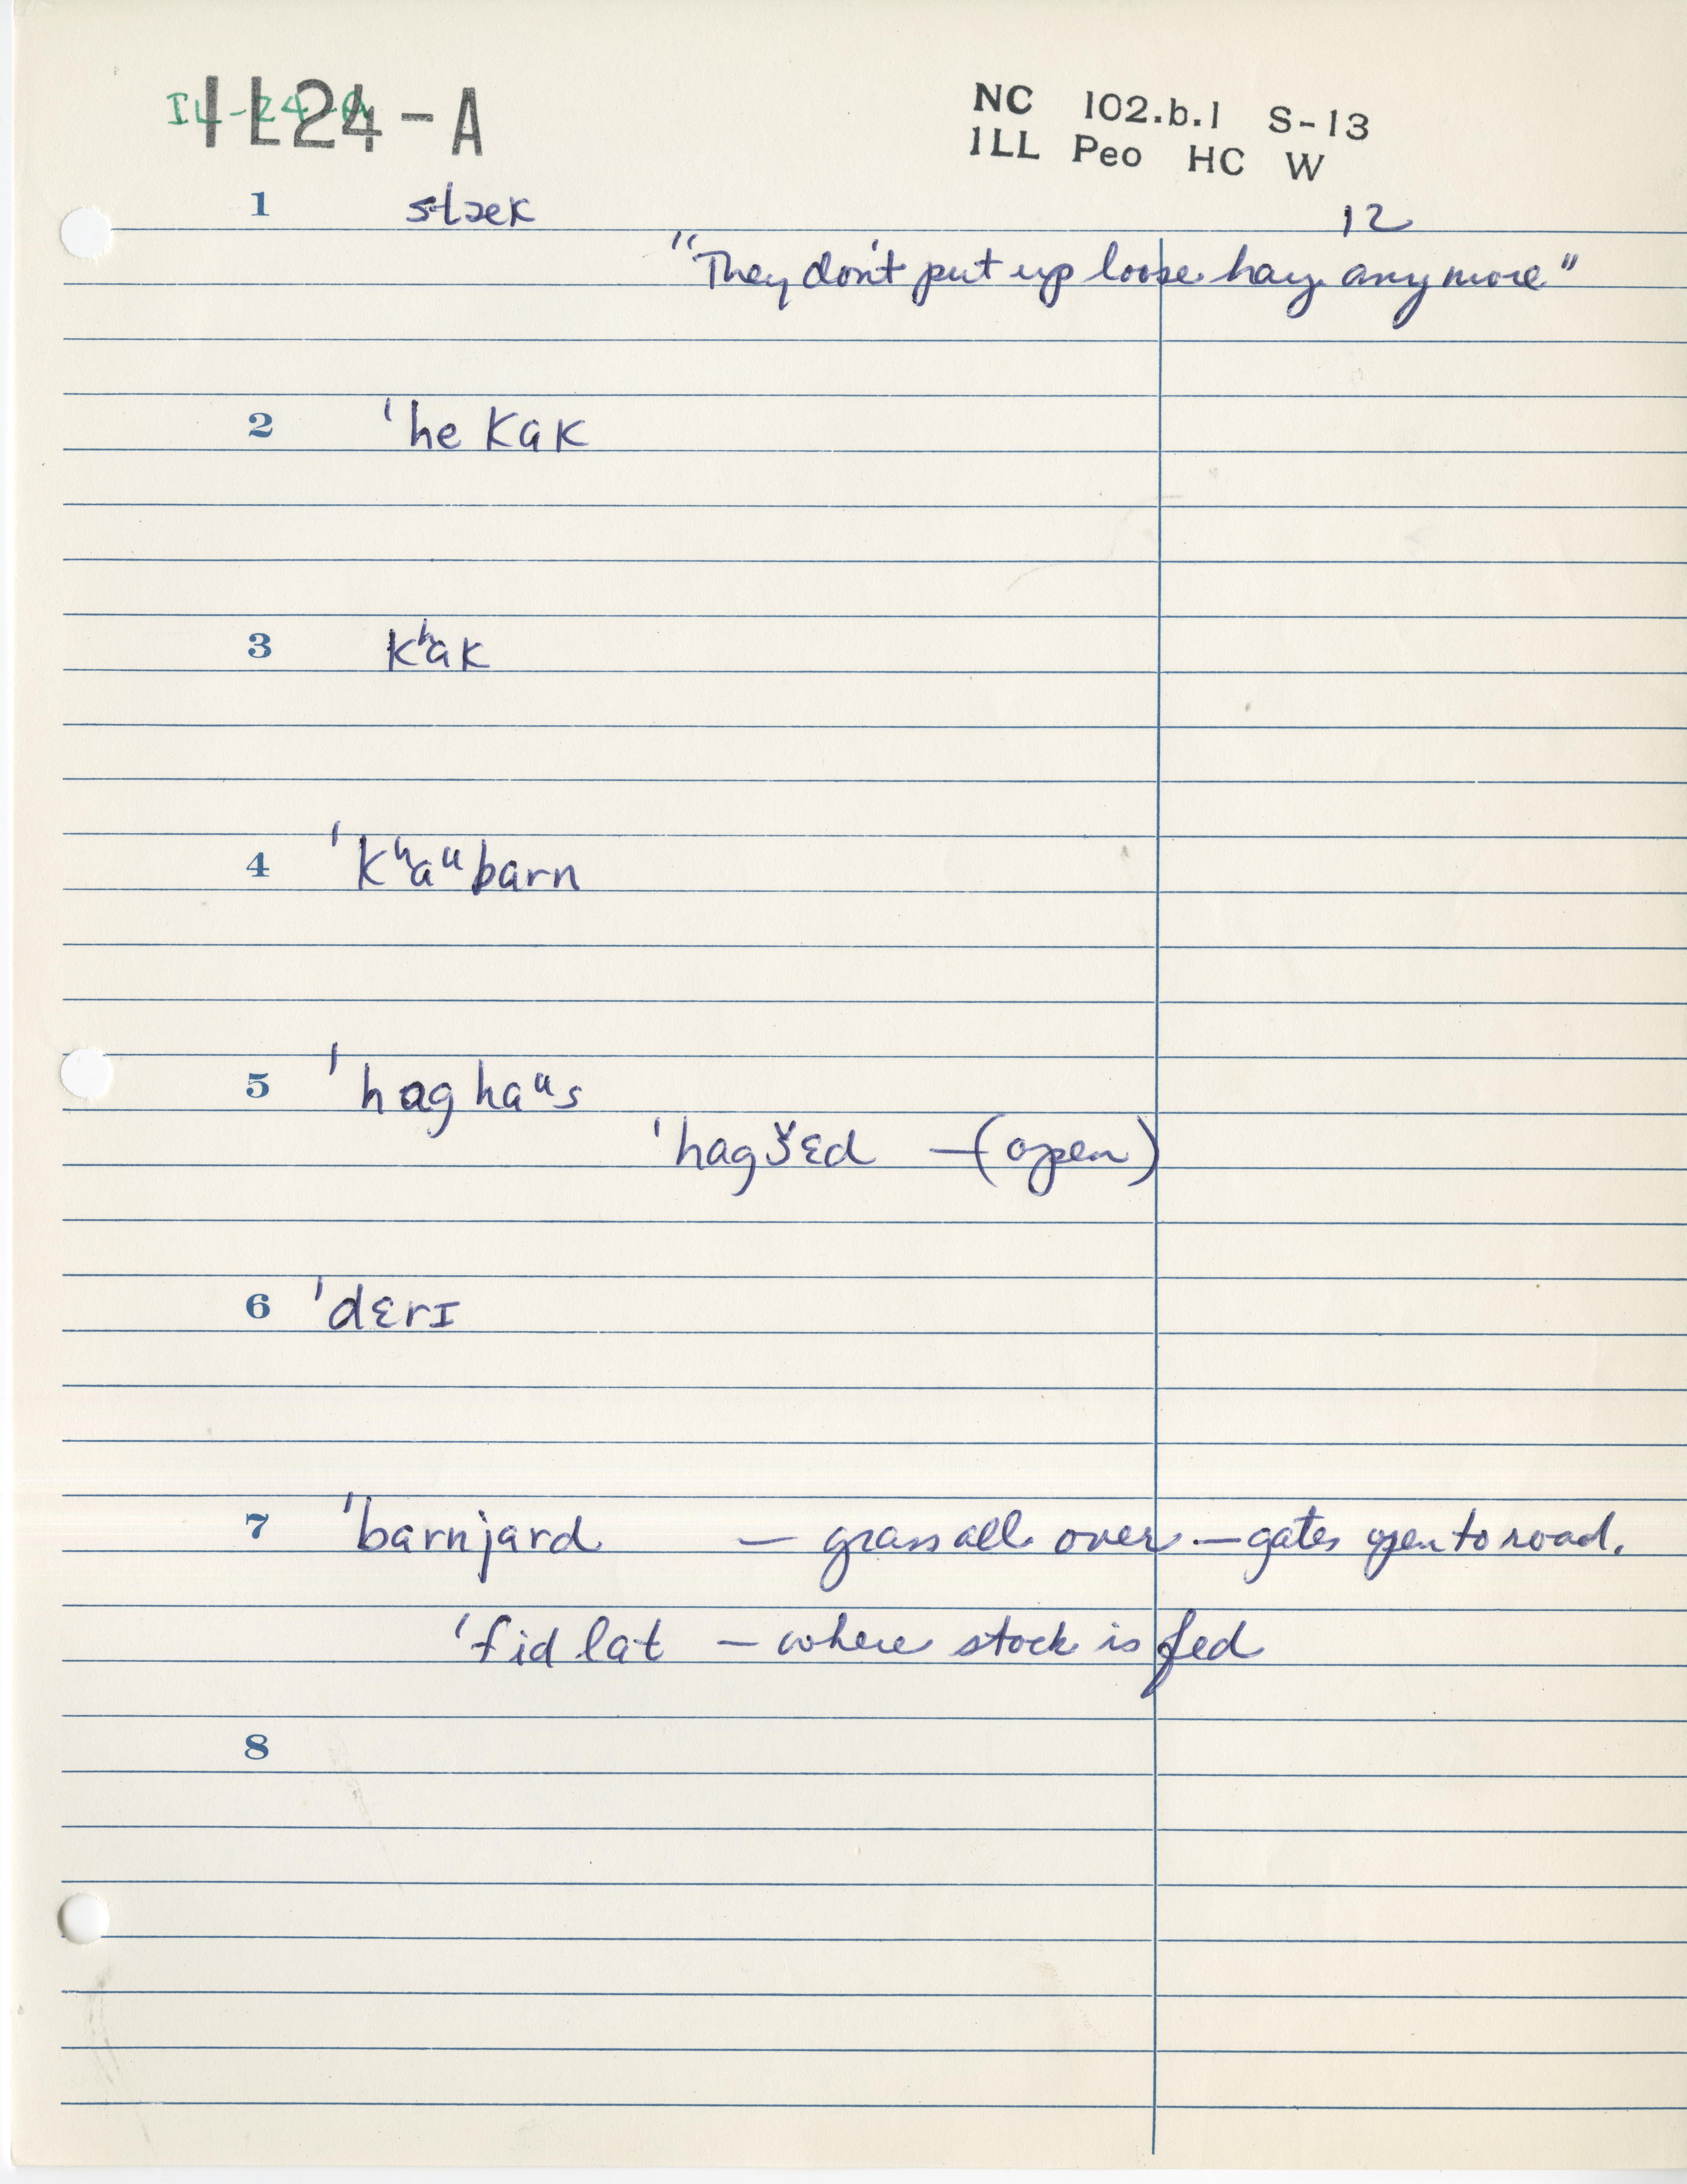 IL-24-A
IL24-A
NC 102.b.1 S-13
ILL Peo HC W
12
1 stæk
"They don't put up loose hay anymore"
2 ˈhe kak
3 kʰak
4 ˈkʰaᵘbarn
5 ˈhaghaᵘs
ˈhagšɛd – (open)
6 ˈdɛrɪ
7 ˈbarnjard – grass all over – gates open to road.
ˈfid lat – where stock is fed
8